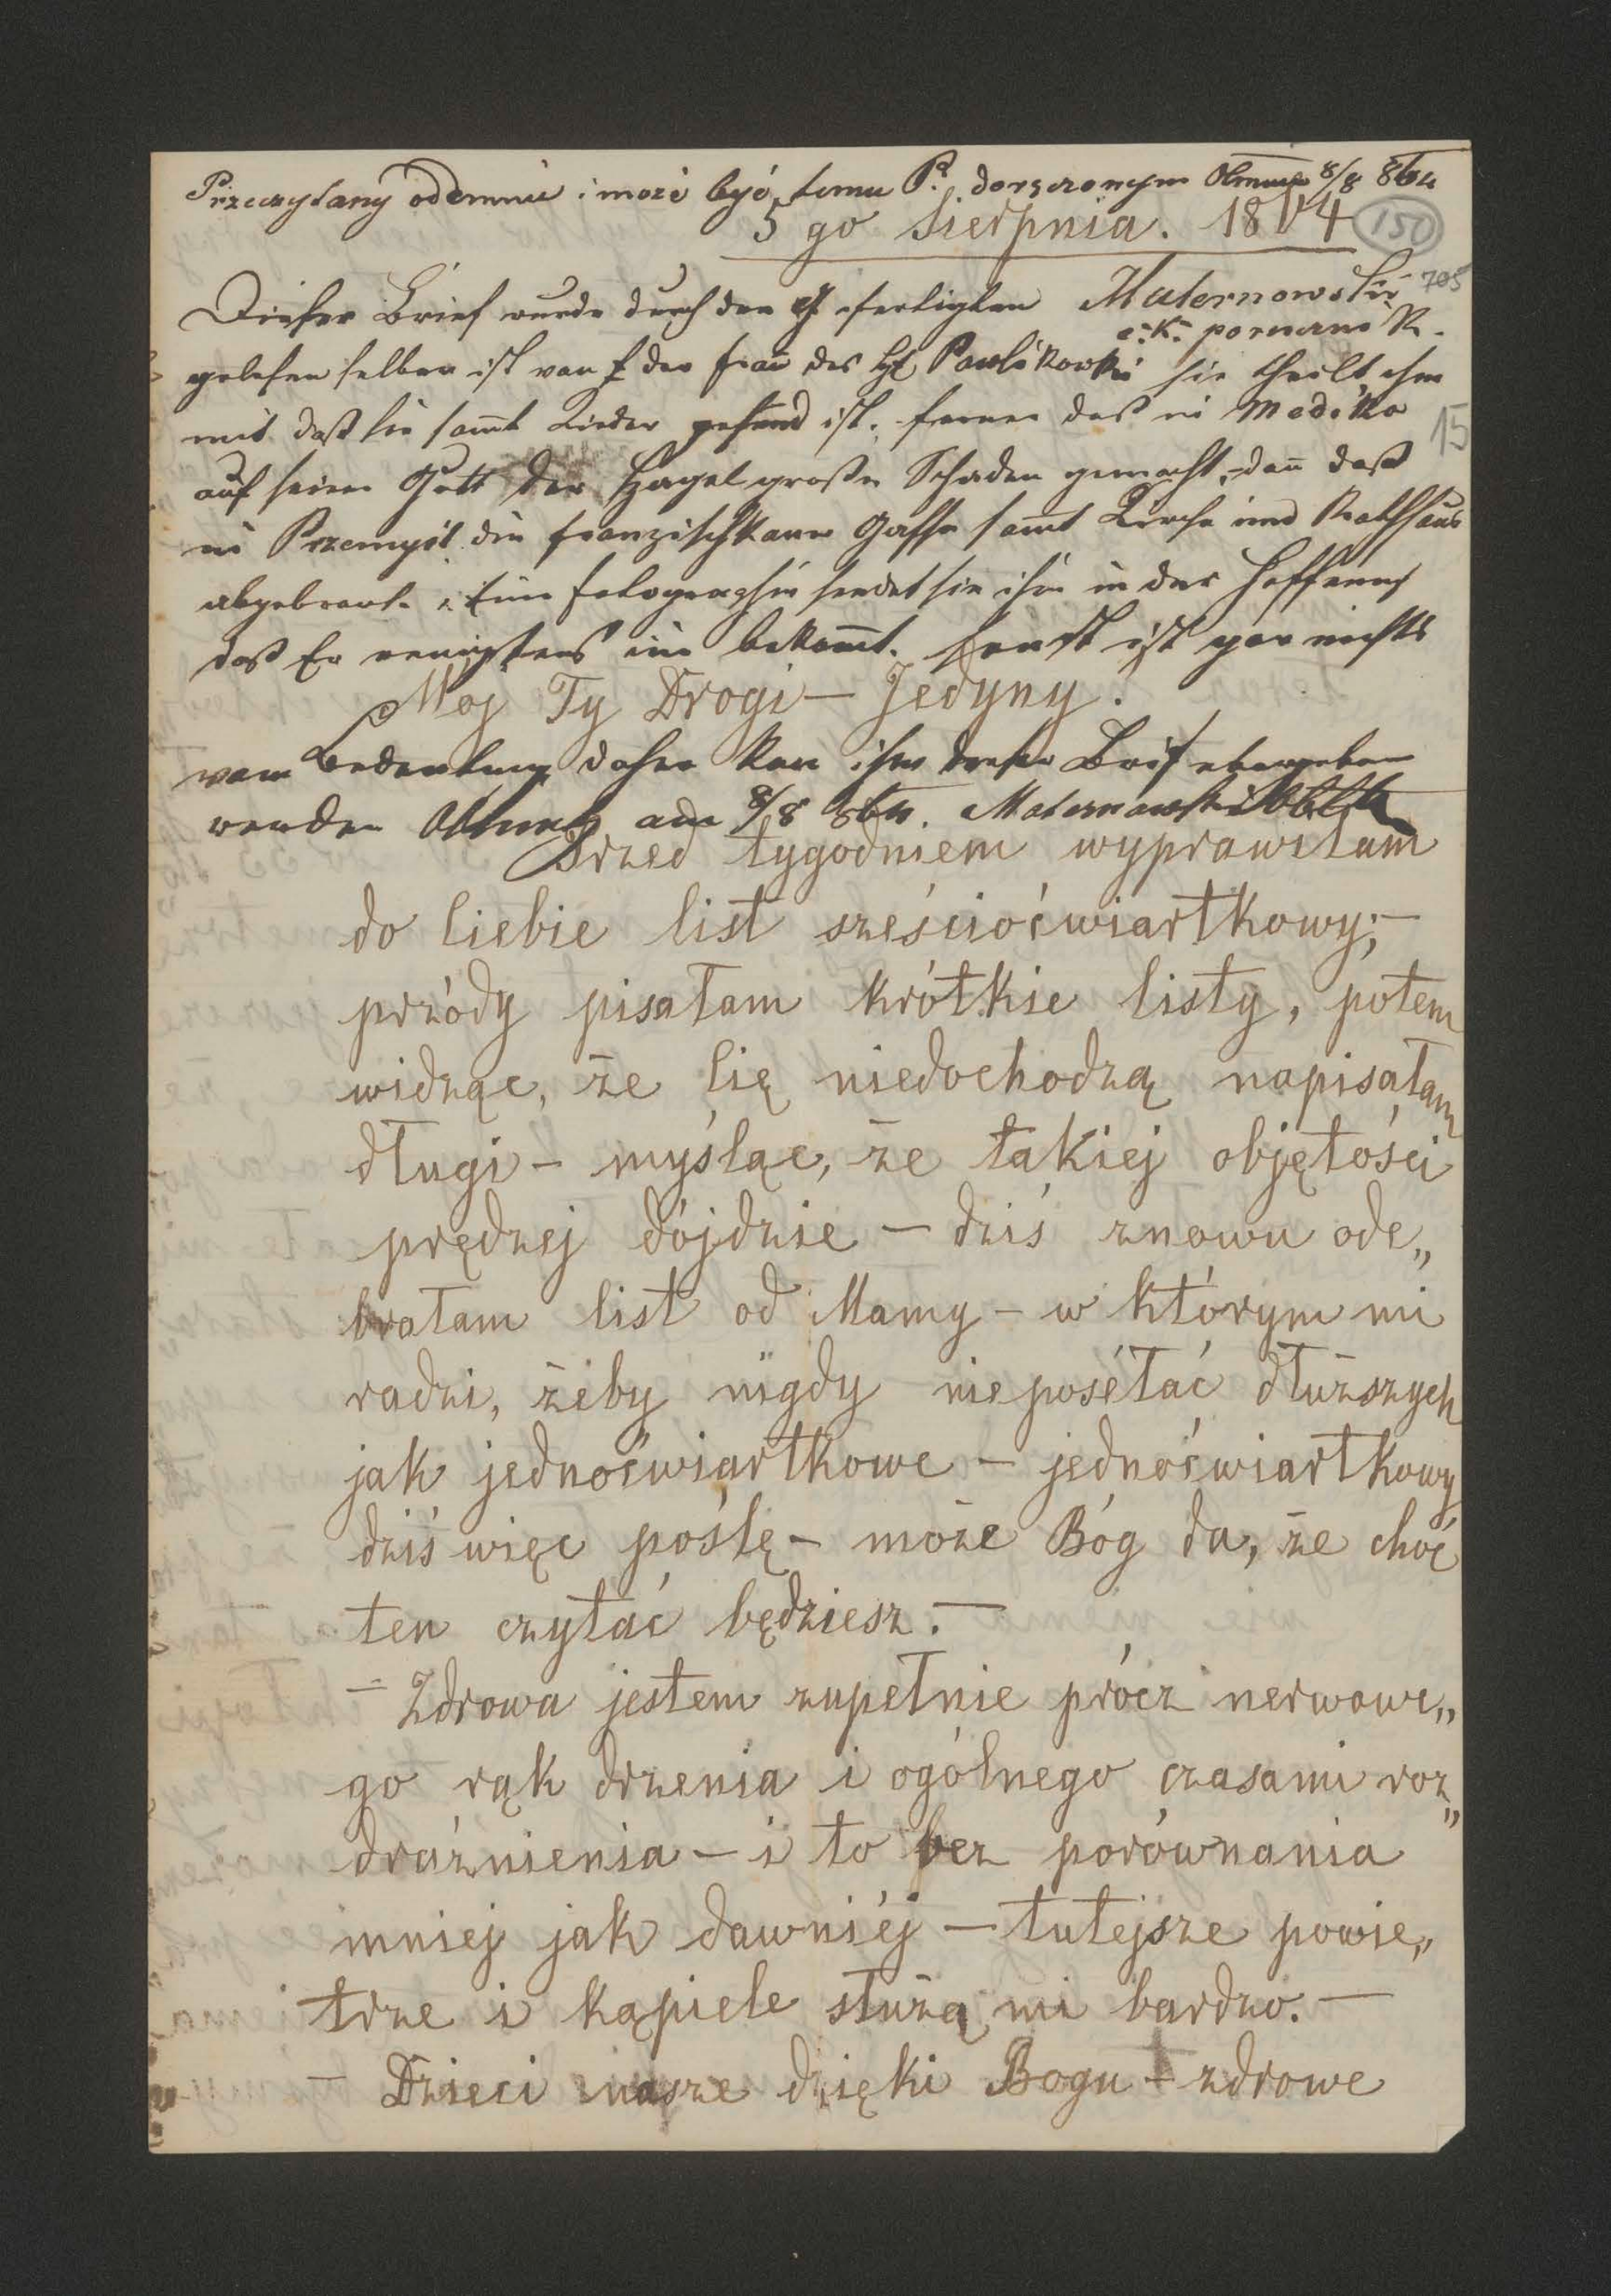 Przeczytany odemnie i może być temu P. doręczonym Olmuc 8/8 864
5 go Sierpnia. 1864
150
Dieser Brief wurde durch den Gefertigten Maternowski
705
c. k. porucznik
gelesen selber ist von der Frau des H Pawlikowski sie theilt ihm
mit daß sie sammt Kinder gesund ist. ferner daß in Medika
15
auf seinem Gutt der Hagel große Schaden gemacht, dann daß
in Przemysl die franzischkaner Gasse sammt Kirche und Rathhaus
abgebrant. Eine Fotographie sendet sie ihm in der Hoffnung
daß Er wenigstens eine bekommt. sonst ist gar nichts
Moj Ty Drogi — Jedyny!
von Bedeutung daher kan ihm dieser Brief übergeben
werden Ollmutz am 8/8 864. Maternowski Obltt
Przed tygodniem wyprawiłam
do Ciebie list sześcioćwiartkowy; —
przódy pisałam krótkie listy, potem
widząc, że Cię niedochodzą napisałam
długi — myśląc, że takiej objętości
prędzej dójdzie — dziś znowu ode„
brałam list od Mamy — w którym mi
radzi, żeby nigdy nieposéłać dłuższych
jak jednoćwiartkowe — jednoćwiartkowy
dziś więc poślę — może Bóg da, że choć
ten czytać będziesz. —
— Zdrowa jestem zupełnie prócz nerwowe„
go rąk drżenia i ogólnego czasami roz„
drażnienia — i to bez porównania
mniej jak dawniéj — tutejsze powie„
trze i kąpiele służą mi bardzo. —
— Dzieci nasze dzięki Bogu — zdrowe